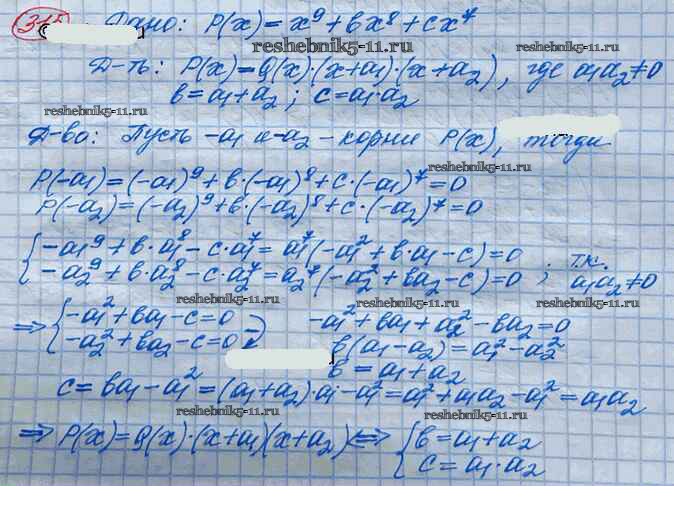 315 Дано: P(x) = x⁹ + bx⁸ + cx⁷
www.reshebnik5-11.ru
Д-ть: P(x) = Q(x)·(x+a₁)·(x+a₂), где a₁a₂≠0
b = a₁+a₂; c = a₁·a₂
reshebnik5-11.ru reshebnik5-11.ru
Д-во: Пусть -a₁ и -a₂ - корни P(x), тогда
www.reshebnik5-11.ru
P(-a₁) = (-a₁)⁹ + b·(-a₁)⁸ + c·(-a₁)⁷ = 0
P(-a₂) = (-a₂)⁹ + b·(-a₂)⁸ + c·(-a₂)⁷ = 0
{ -a₁⁹ + b·a₁⁸ - c·a₁⁷ = a₁⁷(-a₁² + b·a₁ - c) = 0
-a₂⁹ + b·a₂⁸ - c·a₂⁷ = a₂⁷(-a₂² + ba₂ - c) = 0 ; т.к. a₁a₂≠0
www.reshebnik5-11.ru www.reshebnik5-11.ru
⇒ { -a₁² + ba₁ - c = 0
-a₂² + ba₂ - c = 0
-a₁² + ba₁ + a₂² - ba₂ = 0
b(a₁ - a₂) = a₁² - a₂²
b = a₁ + a₂
c = ba₁ - a₁² = (a₁+a₂)·a₁ - a₁² = a₁² + a₁a₂ - a₁² = a₁a₂
www.reshebnik5-11.ru www.reshebnik5-11.ru
⇒ P(x) = Q(x)·(x+a₁)(x+a₂) ⇔ { b = a₁+a₂
c = a₁·a₂